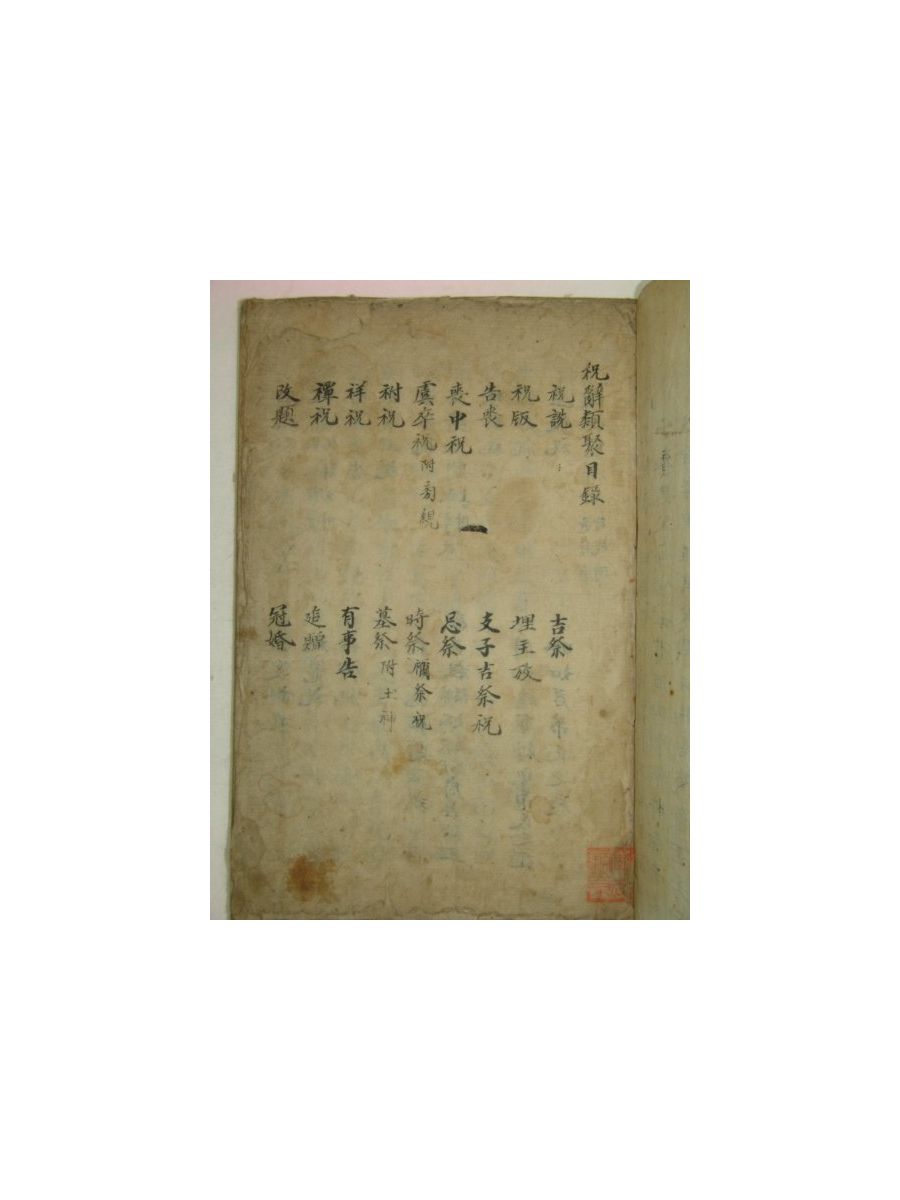 祝辭類聚目錄
祝說
祝版
告喪
喪中祝
虞卒祝附剪親
祔祝
祥祝
禫祝
改題
吉祭
埋主放
支子吉祭祝
忌祭
時祭禰祭祝
墓祭附土神
有事告
追
冠婚